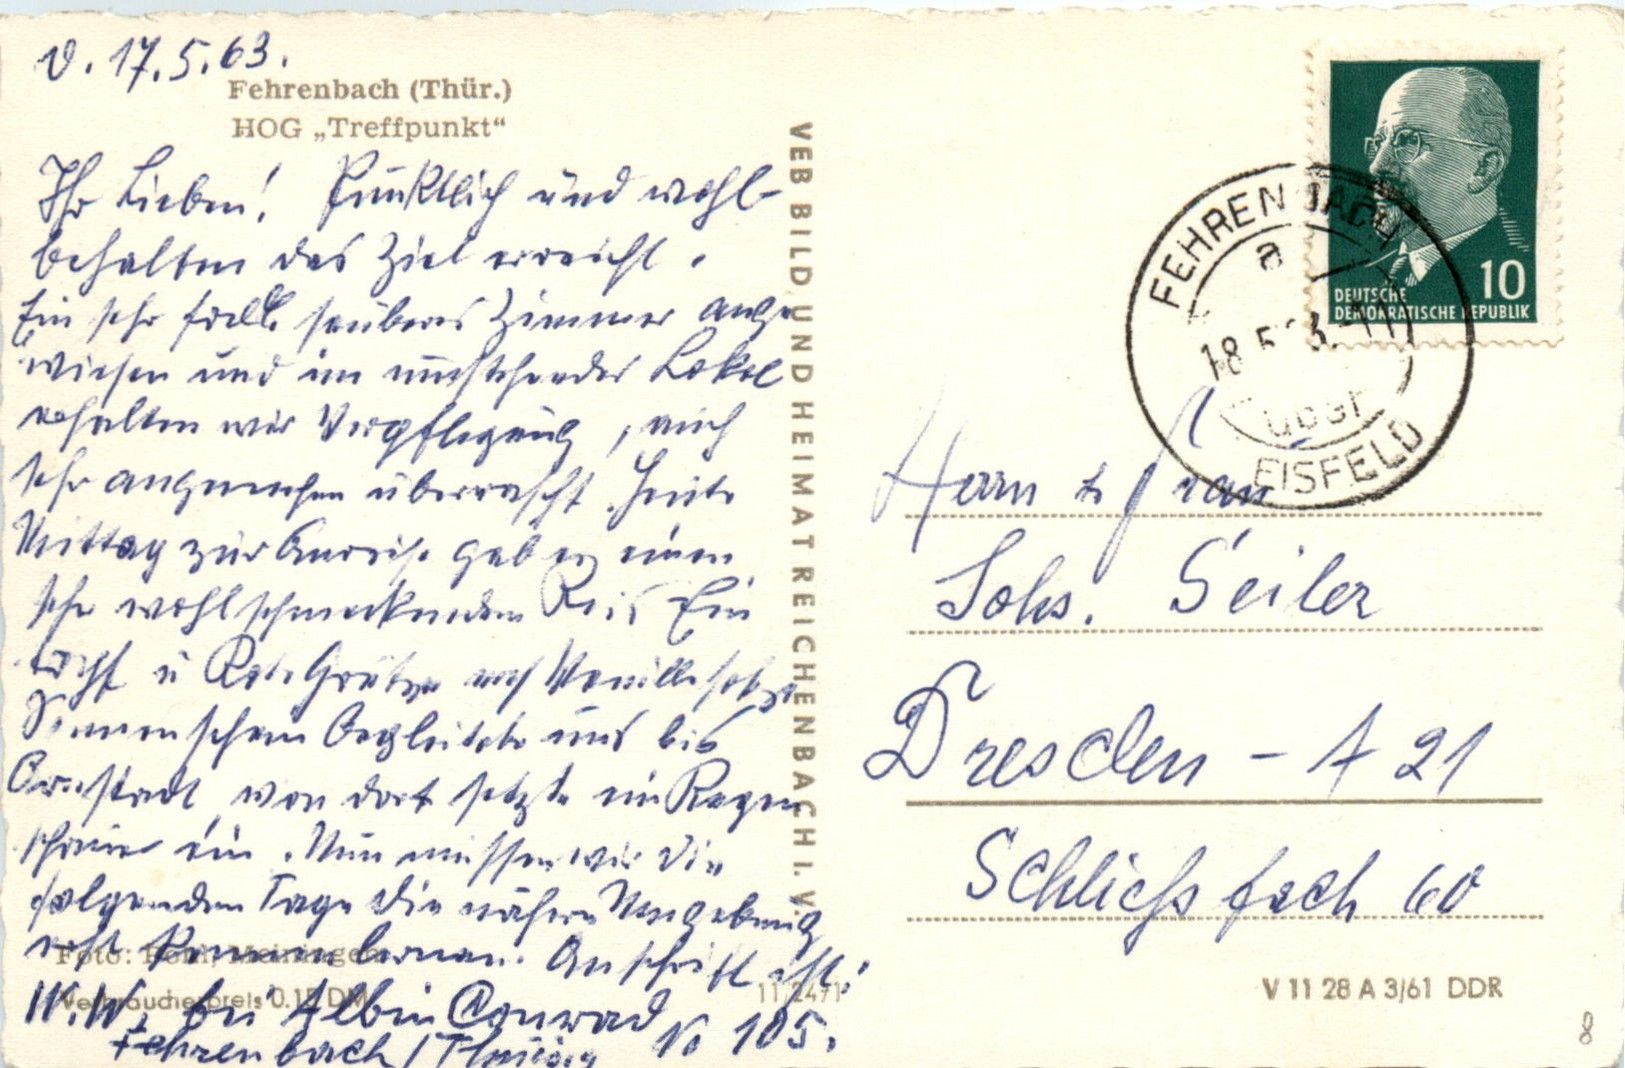 d. 17.5.63.
Fehrenbach (Thür.)
HOG „Treffpunkt“
Ihr Lieben! Pünktlich und wohl-
behalten das Ziel erreicht.
Ein sehr sauberes Zimmer ange
wiesen und im umstehender Lokal
erhalten wir Verpflegung, auch
sehr angenehm überrascht. Heute
Mittag zur Anreise gab es einen
sehr wohlschmeckenden Reis Ein
topf u Rote Grütze mit Vanillesoße
Sonnenschein begleitete uns bis
Arnstadt, von dort setzte ein Regen
schauer ein. Nun müssen wir die
folgenden Tage die nähere Umgebung
erst kennen lernen. Anschrift ist:
W.W. bei Albin Conrad
Fehrenbach / Thüring No 105.
Foto: Meiningen
Verbraucherpreis 0.15 DM
11/2471
VEB BILD UND HEIMAT REICHENBACH I. V.
10
DEUTSCHE
DEMOKRATISCHE REPUBLIK
FEHRENBACH
a
18.5.63.-11
über
EISFELD
Herrn & Frau
Johs. Seiler
Dresden - A 21
Schließfach 60
V 11 28 A 3/61 DDR
8